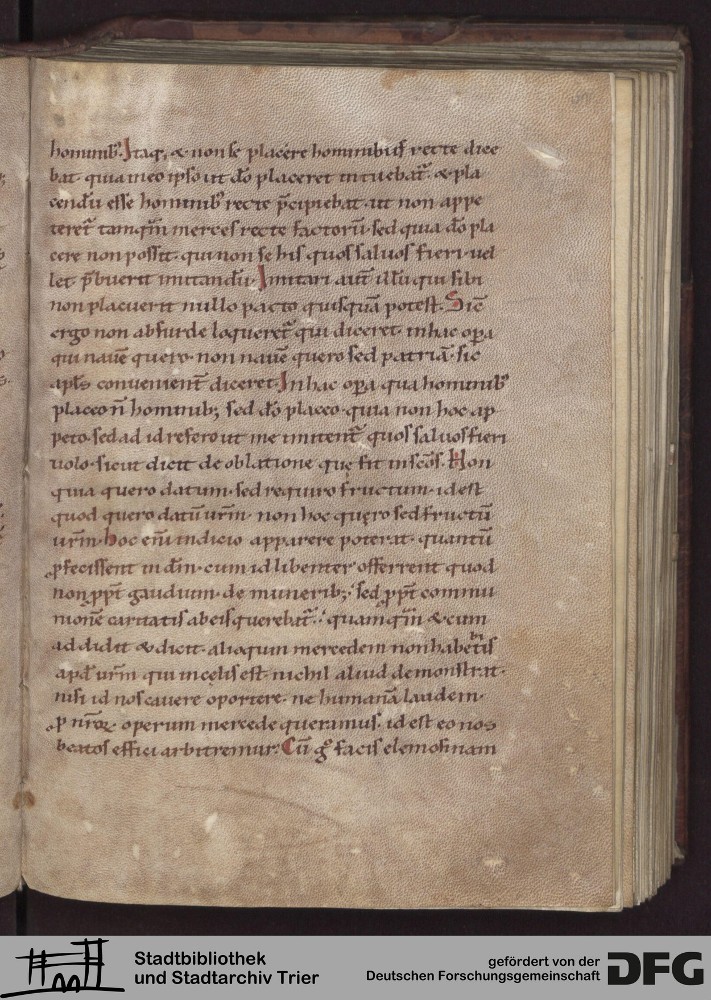 hominib᷒. Itaq; & non se placere hominibus recte dice
bat. quia in eo ipso ut dō placeret intuebat᷑. & pla
cendū esse hominib᷒ recte p̄cipiebat. ut non appe
teret᷑ tamq̄m merces recte factorū. sed quia dō pla
cere non possit. qui non se his quos saluos fieri uel
let p̄buerit imitandū. Imitari aut̄ illū qui sibi
non placuerit nullo pacto quisquā potest. Sic̄
ergo non absurde loqueret᷑ qui diceret. in hac opa
qui nauē quero. non nauē quero sed patriā. sic
apl̄s convenient̄ diceret. In hac opa qua hominib᷒
placeo n̄ hominib; sed dō placeo. quia non hoc ap
peto. sed ad id refero ut me imitent᷑ quos saluos fieri
uolo. sicut dicit de oblatione quę fit in scōs. Non
quia quero datum. sed requiro fructum. id est
quod quero datū ur̄m. non hoc quęro sed fructū
ur̄m. Hoc enī indicio apparere poterat. quantū
ꝓfecissent in dm̄. cum id libenter offerrent quod
non ꝓpt̄ gaudium. de munerib; sed ꝓpt̄ commu
nionē caritatis ab eis querebat᷑. quamq̄m & cum
addidit & dicit. alioquin mercedem non habebitis
apđ ur̄m qui in cęlis est. nichil aliud demonstrat.
nisi id nos cauere oportere. ne humanā laudem.
ꝓ nr̄oꝝ operum mercede queramus. id est eo nos
beatos effici arbitremur. Cū gͦ facis elemosinam
Stadtbibliothek
und Stadtarchiv Trier
gefördert von der
Deutschen Forschungsgemeinschaft
DFG